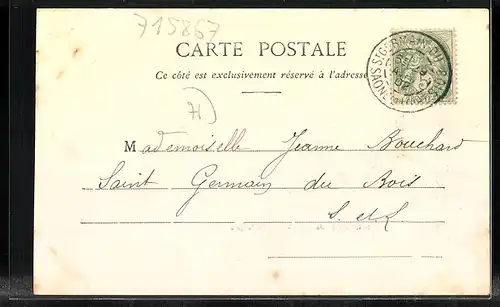 715867
CARTE POSTALE
Ce côté est exclusivement réservé à l'adresse
71
Mademoiselle Jeanne Bouchard
Saint Germain du Bois
S. et L.